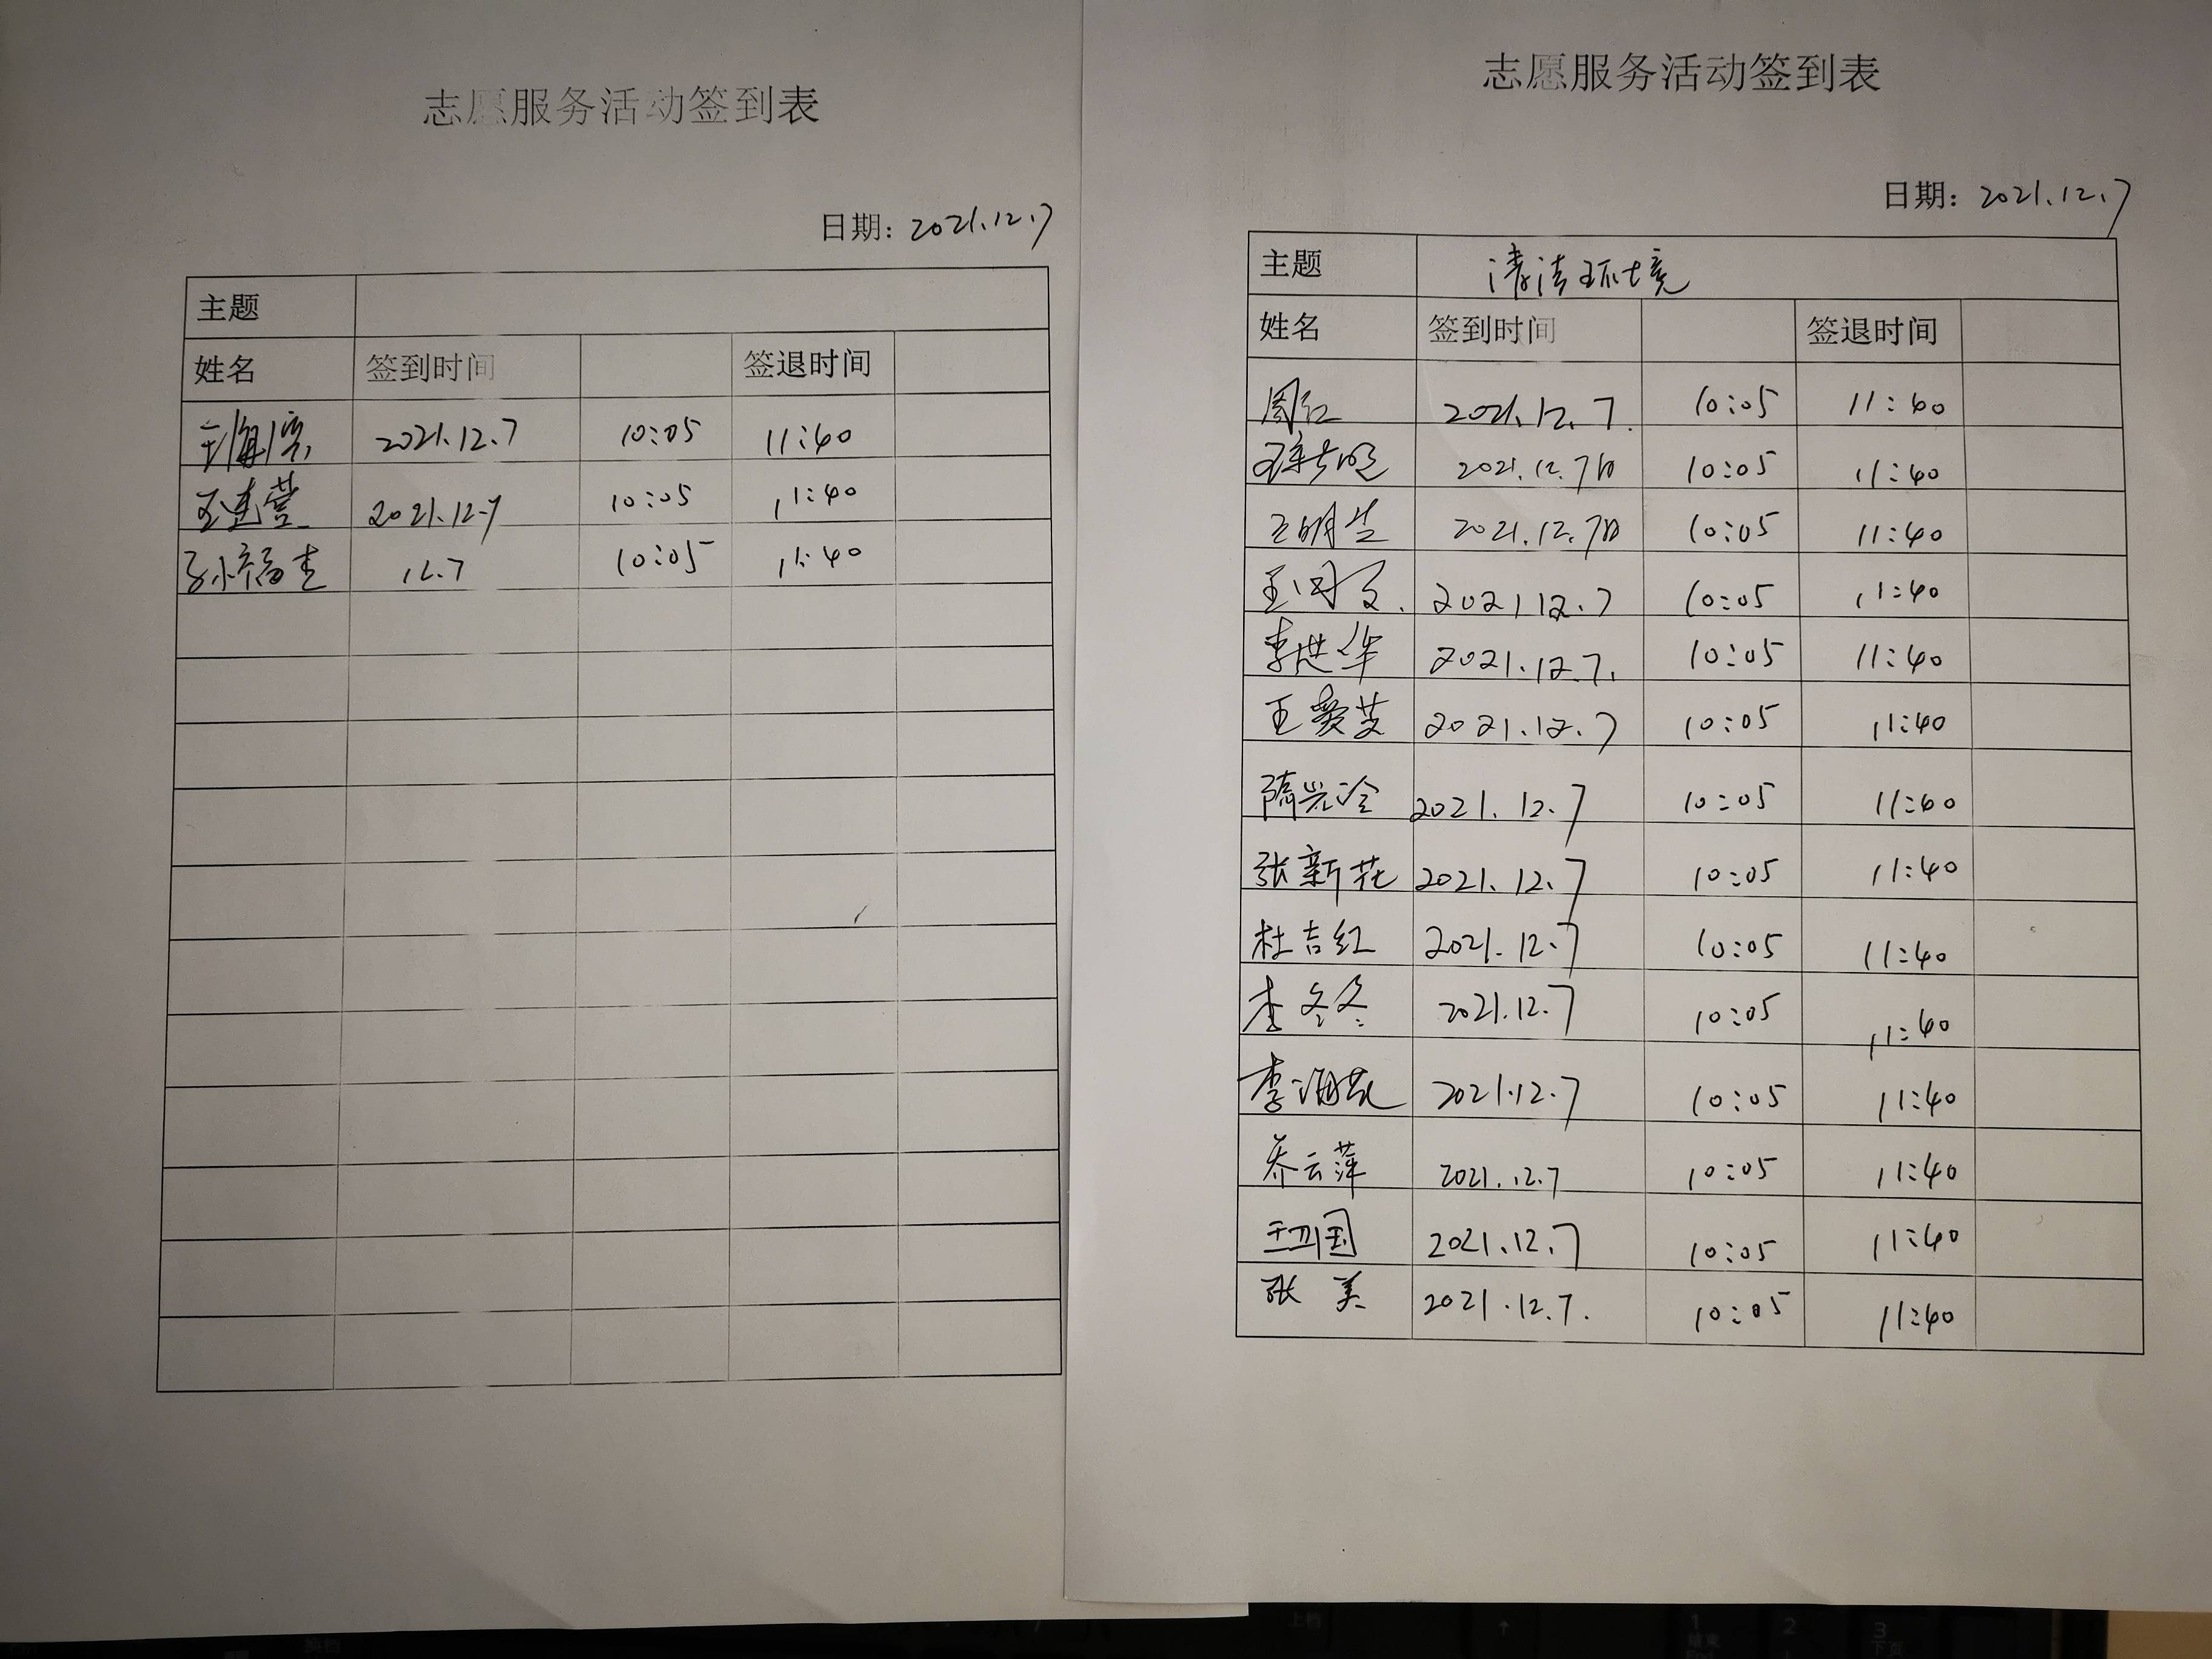 志愿服务活动签到表
日期: 2021.12.7
主题
姓名 签到时间 签退时间
2021.12.7 10:05 11:40
王连营 2021.12.7 10:05 11:40
孙福吉 12.7 10:05 11:40
志愿服务活动签到表
日期: 2021.12.7
主题 清洁环境
姓名 签到时间 签退时间
周红 2021.12.7. 10:05 11:40
2021.12.7日 10:05 11:40
王明兰 2021.12.7日 10:05 11:40
2021 12.7 10:05 11:40
李洪华 2021.12.7. 10:05 11:40
王爱芝 2021.12.7 10:05 11:40
隋兴冷 2021.12.7 10:05 11:40
张新花 2021.12.7 10:05 11:40
杜吉红 2021.12.7 10:05 11:40
李冬冬 2021.12.7 10:05 11:40
李海花 2021.12.7 10:05 11:40
乔云萍 2021.12.7 10:05 11:40
王卫国 2021.12.7 10:05 11:40
张美 2021.12.7. 10:05 11:40
上档
↑
1
结束
2
3
下页